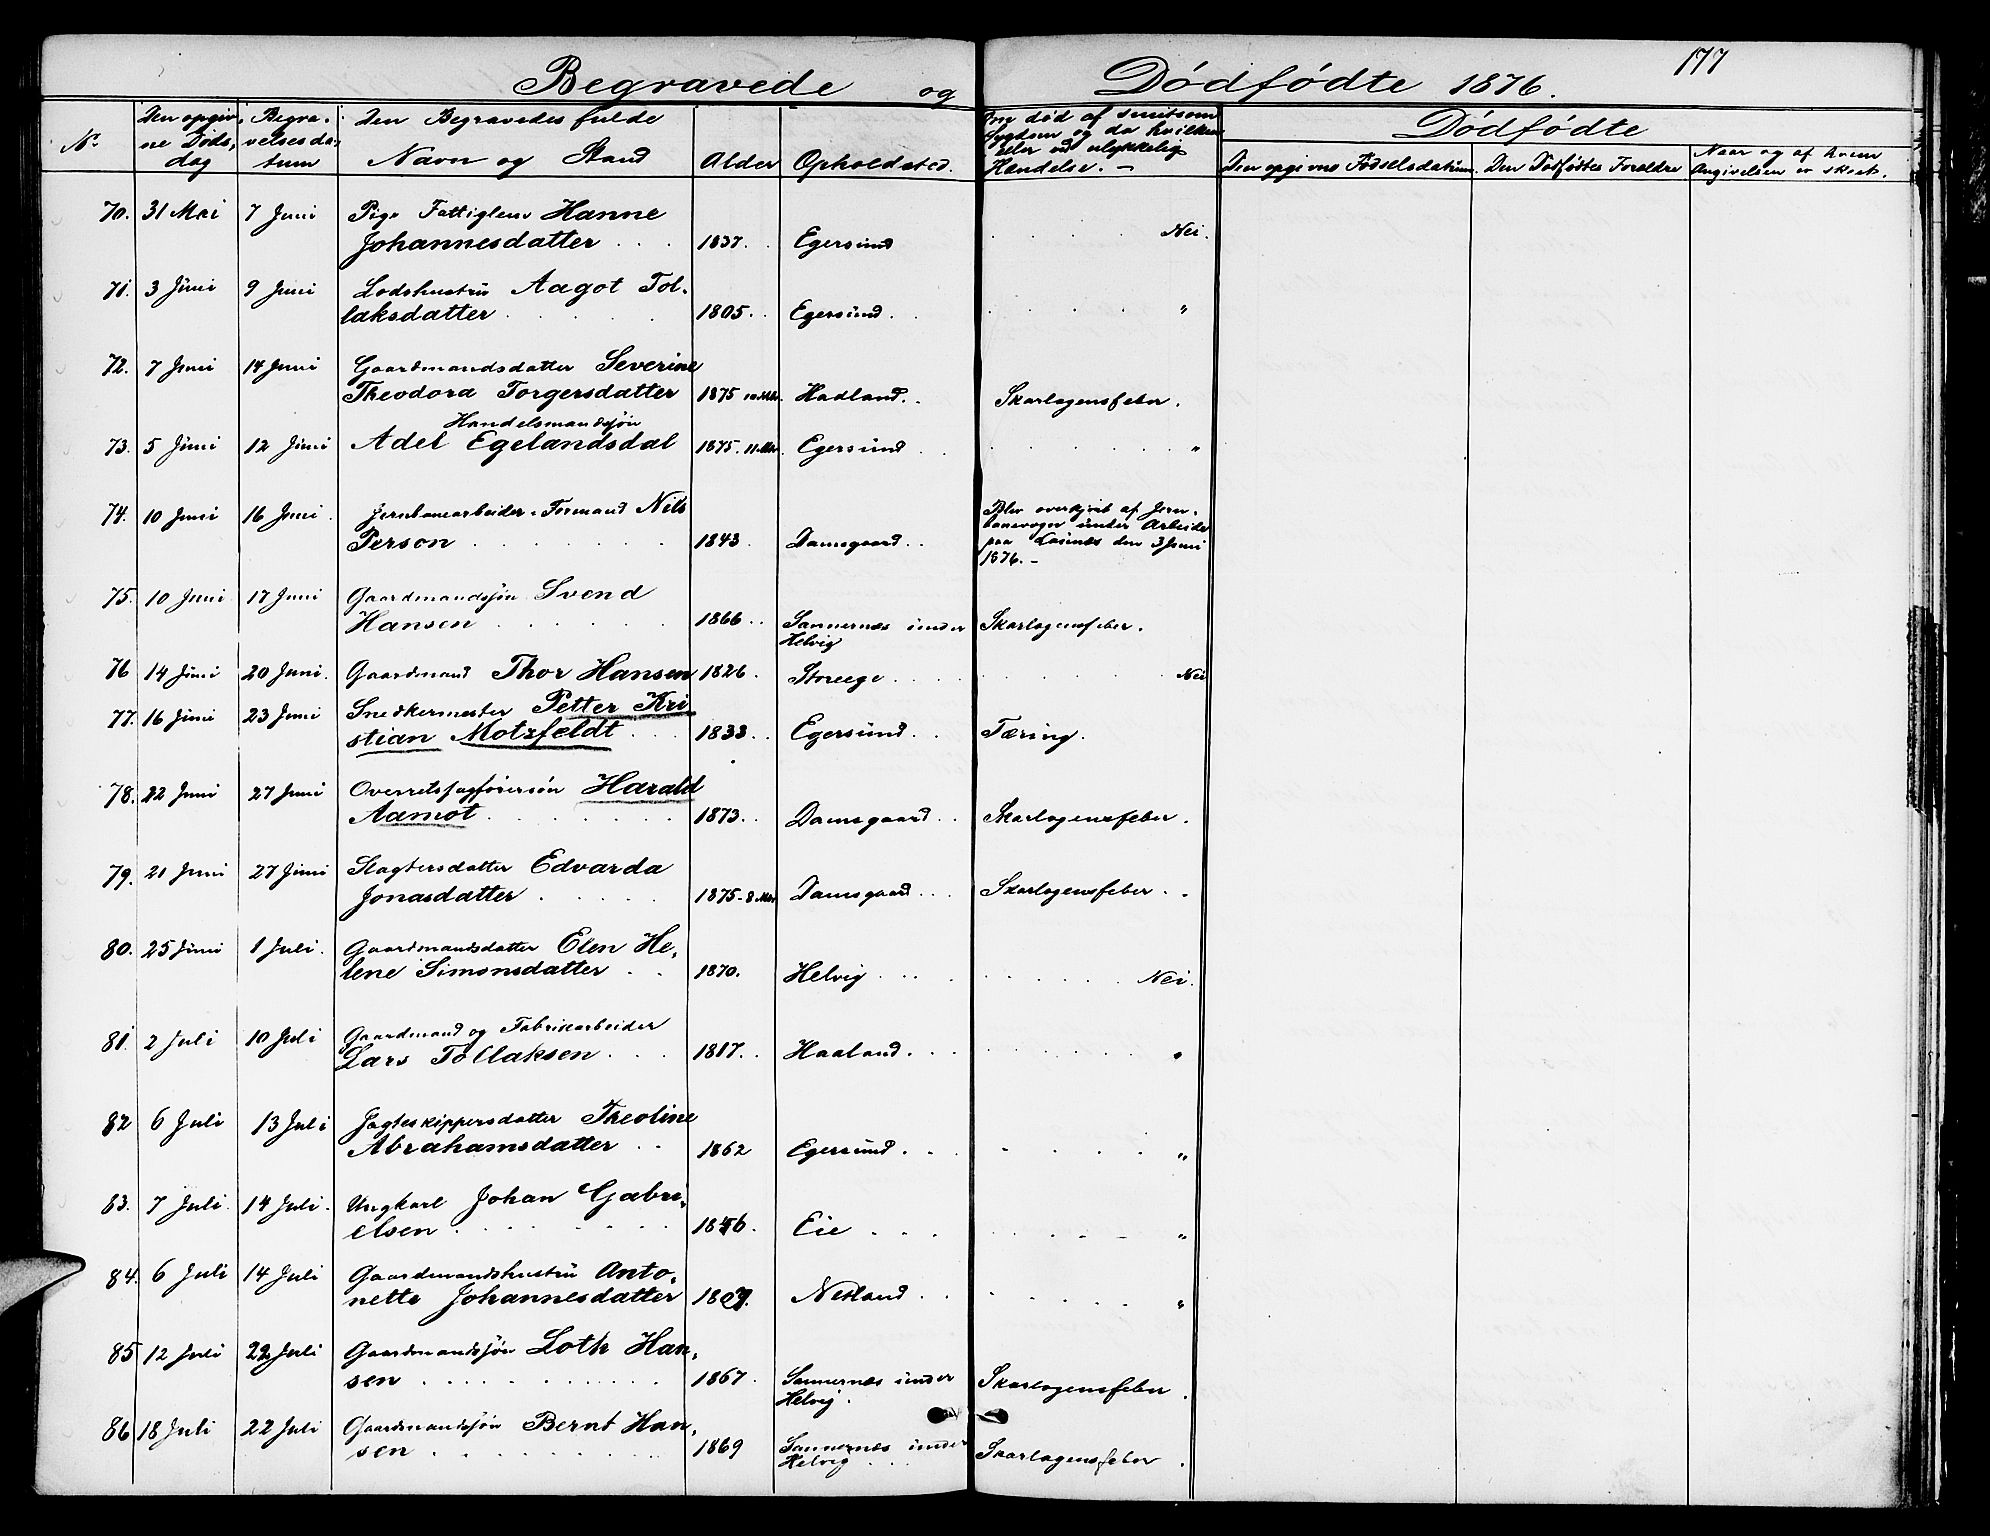 177
Begravede og Dødfødte 1876.
No. Den opgivne Døds, dag Begravelsesdatum Den Begravedes fulde Navn og Stand Alder Opholdsted. Om død af smitsom Sygdom og da hvilken eller ved ulykkelig Hændelse. — Dødfødte Den opgivne Fødselsdatum. Den Dødfødtes Forældre Naar og af hvem Angivelsen er skeet.
70. 31 Mai 7 Juni Pige Fattiglem Hanne
Johannesdatter . . . 1837. Egersund . . . . Nei.
71. 3 Juni 9 Juni Lodshustru Aagot Tol-
laksdatter . . . . 1805. . Egersund . . . . . . "
72. 7 Juni 14 Juni Gaardmandsdatter Severine
Theodora Torgersdatter 1875 10 Mdr. Hadland. . Skarlagensfeber.
Handelsmandssøn
73. 5 Juni 12 Juni Adel Egelandsdal 1875. 11 Mdr. Egersund . . . . . "
74. 10 Juni 16 Juni. Jernbanearbeider-Formand Nils
Person . . . . . . 1843. Damsgaard. . Blev overkjørt af Jern-
banevogn under Arbeide
paa den 3 Juni
1876. —
75. 10 Juni 17 Juni Gaardmandssøn Svend
Hansen . . . . . 1866. . Sannernæs under Skarlagensfeber.
Helvig
76 14 Juni 20 Juni. Gaardmand Thor Hansen 1826. Storeege . . . . . . Nei
77. 16 Juni 23 Juni Snedkermester Petter Kri
stian Motzfeldt . . . 1833. . Egersund. . Tæring.
78. 22 Juni 27 Juni Overretssagførersøn Harald
Aamot . . . . . . 1873. . Damsgaard. . Skarlagensfeber.
79. 21 Juni 27 Juni Slagtersdatter Edvarda
Jonasdatter . . . . 1875-8 Mdr Damsgaard. . . Skarlagensfeber. .
80. 25 Juni 1 Juli. Gaardmandsdatter Elen He-
lene Simonsdatter . . 1870. Helvig . . . . . . . Nei.
81. 2 Juli 10 Juli Gaardmand og Fabrikarbeider
Lars Tollaksen . . . 1817. . Haaland. . . . . . . "
82 6 Juli 13 Juli Jagteskippersdatter Theoline
Abrahamsdatter . . 1862 Egersund. . . . . . . "
83. 7 Juli. 14 Juli. Ungkarl Johan Gabri-
elsen . . . . . . . 1846. Eie . . . . . . - "
84. 6 Juli 14 Juli Gaardmandshustru Anto-
nette Johannesdatter 1807. Nesland . . . . . . "
85 12 Juli 22 Juli Gaardmandssøn Loth Han-
sen . . . . . . . . 1867. Sannernæs under Skarlagensfeber .
Helvig.
86 18 Juli 22 Juli Gaardmandssøn Bernt Han-
sen . . . . . . . 1869 Sannernæs under Skarlagensfeber .
Helvig . . .